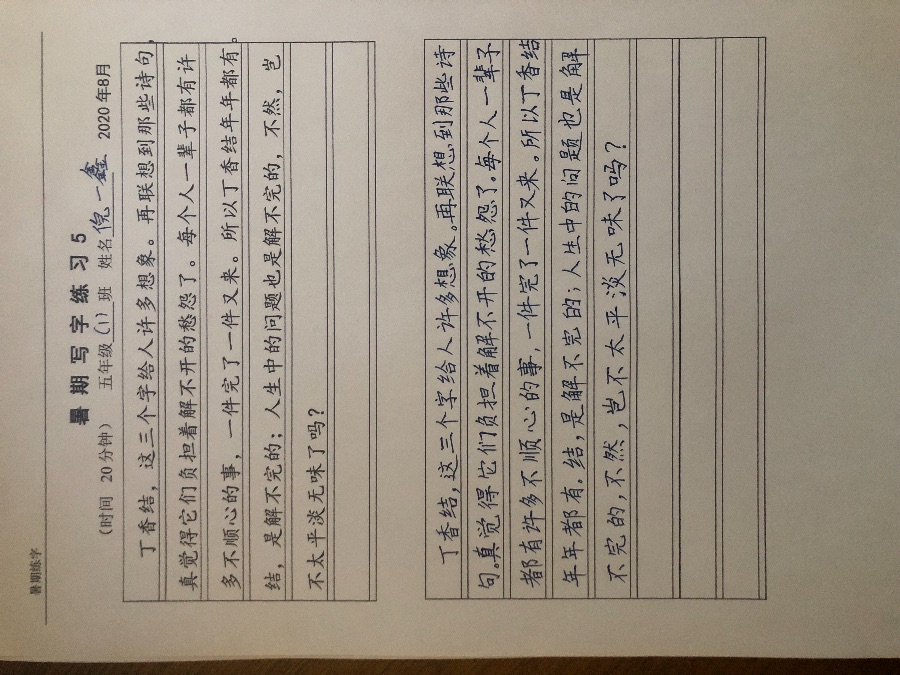 暑期练字
暑期写字练习5
（时间 20分钟） 五年级（1）班 姓名倪一鑫 2020年8月
丁香结，这三个字给人许多想象。再联想到那些诗句，
真觉得它们负担着解不开的愁怨了。每个人一辈子都有许
多不顺心的事，一件完了一件又来。所以丁香结年年都有。
结，是解不完的；人生中的问题也是解不完的，不然，岂
不太平淡无味了吗？
丁香结，这三个字给人许多想象。再联想到那些诗
句。真觉得它们负担着解不开的愁怨了。每个人一辈子
都有许多不顺心的事，一件完了一件又来。所以丁香结
年年都有。结，是解不完的；人生中的问题也是解
不完的，不然，岂不太平淡无味了吗？